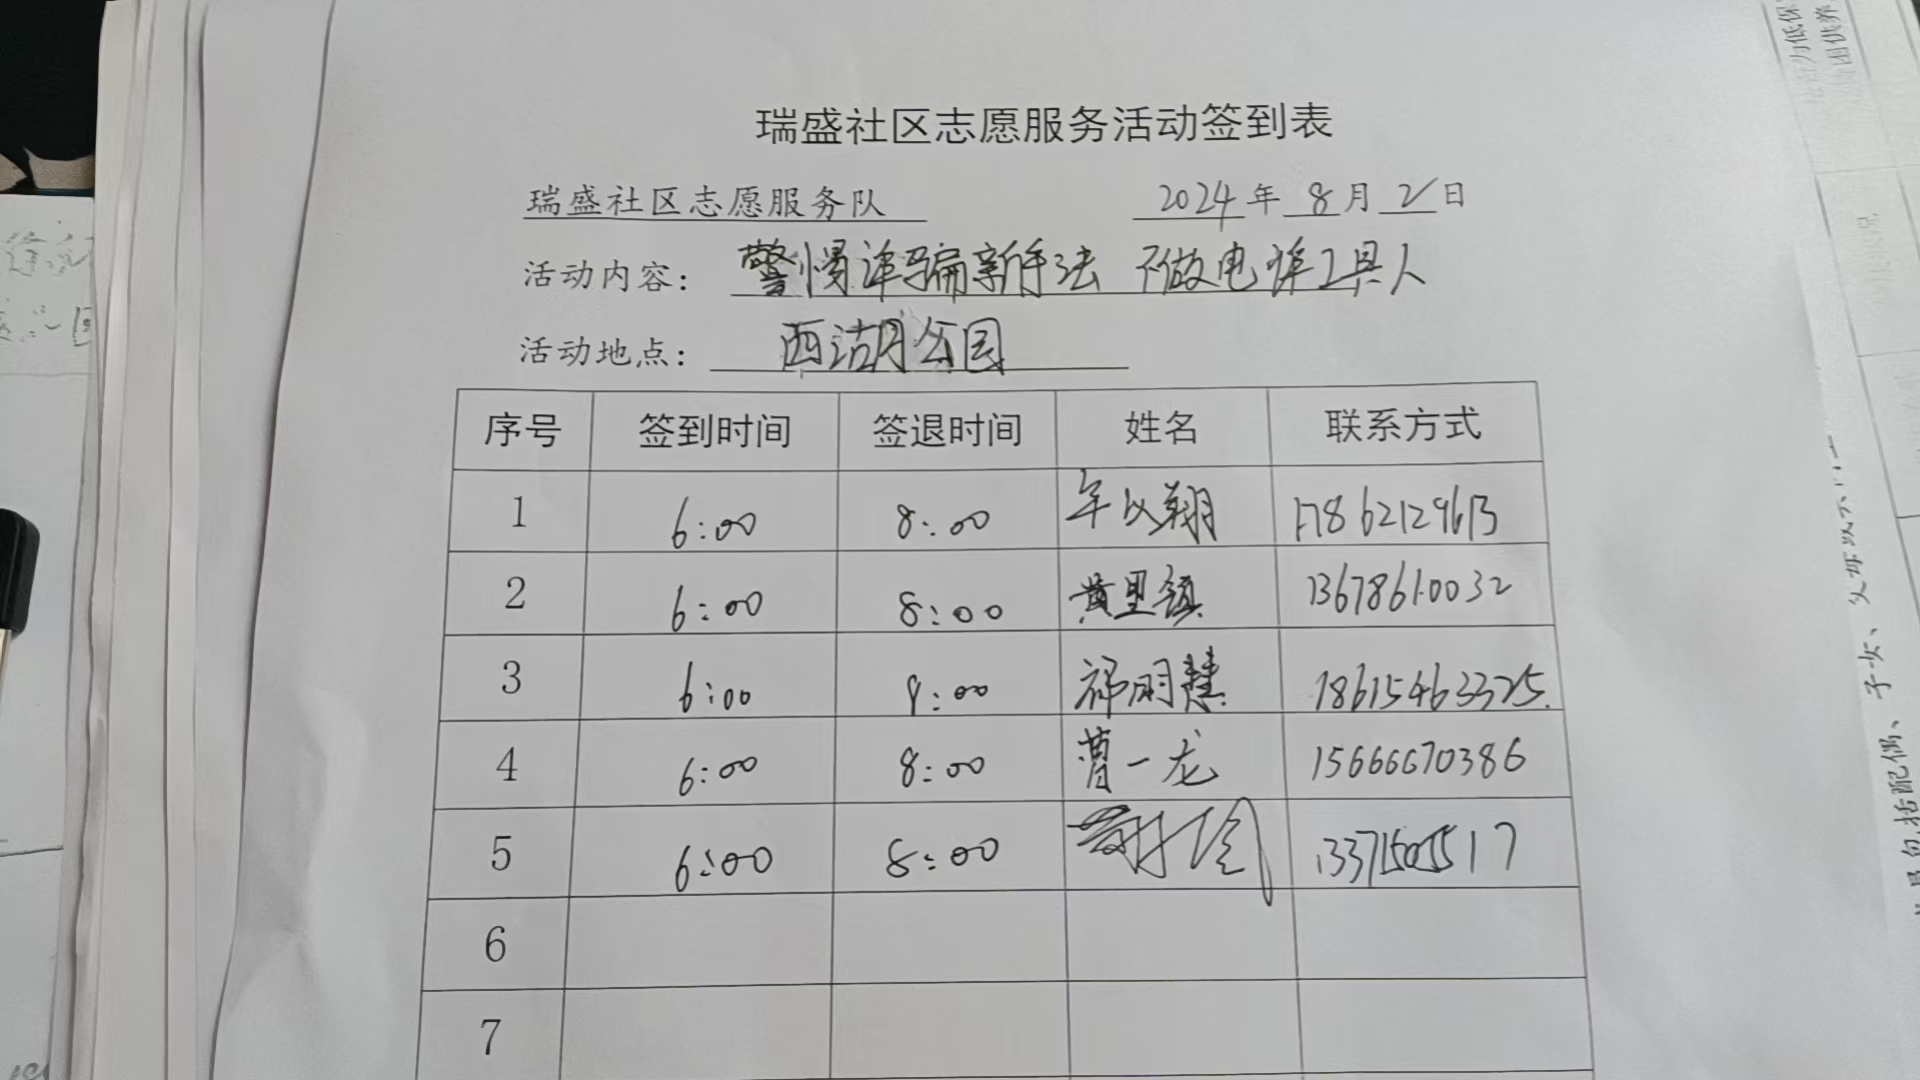 瑞盛社区志愿服务活动签到表
瑞盛社区志愿服务队 2024年 8月 2日
活动内容： 警惕诈骗新手法 不做电诈工具人
活动地点： 西湖月公园
序号 签到时间 签退时间 姓名 联系方式
1 6:00 8:00 年以翔 17862129613
2 6:00 8:00 黄里镇 13678610032
3 6:00 8:00 祁明慧 18615463325.
4 6:00 8:00 曹一龙 15666670386
5 6:00 8:00 13371505517
6
7
为低保
困供养
父母
子女、
包括配偶、